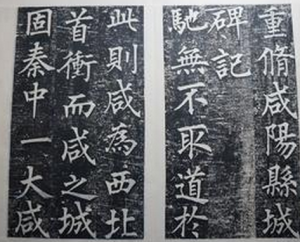 重脩咸陽縣城
碑記
馳無不取道於
此則咸為西北
首衝而咸之城
固秦中一大咸